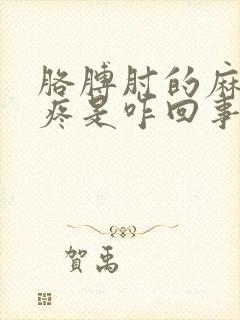 胳膊肘的麻
疼是咋回事
賀禹